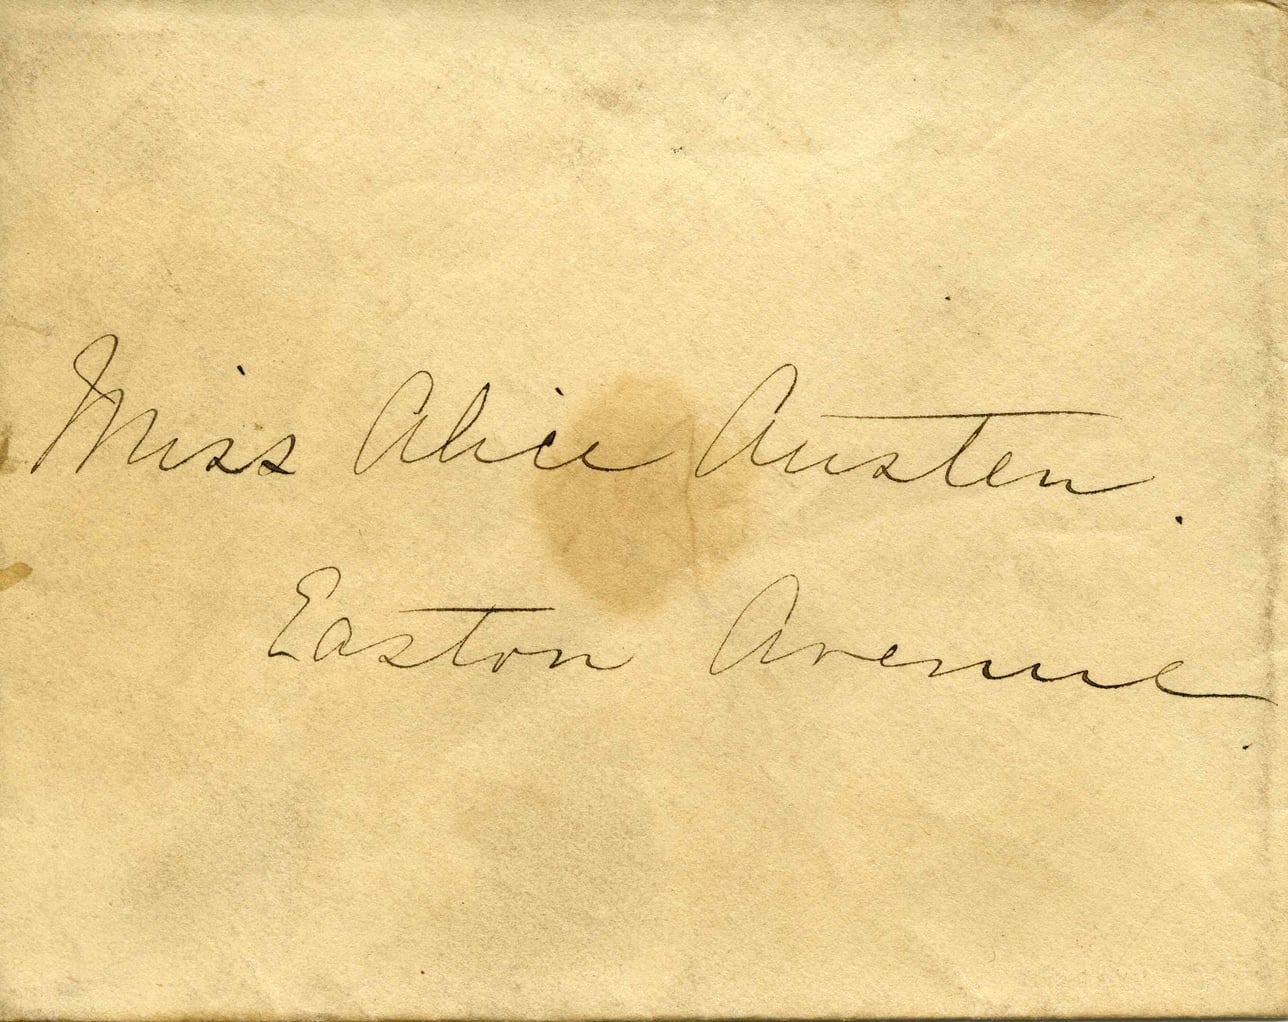 Miss Alice Austen.
Easton Avenue.